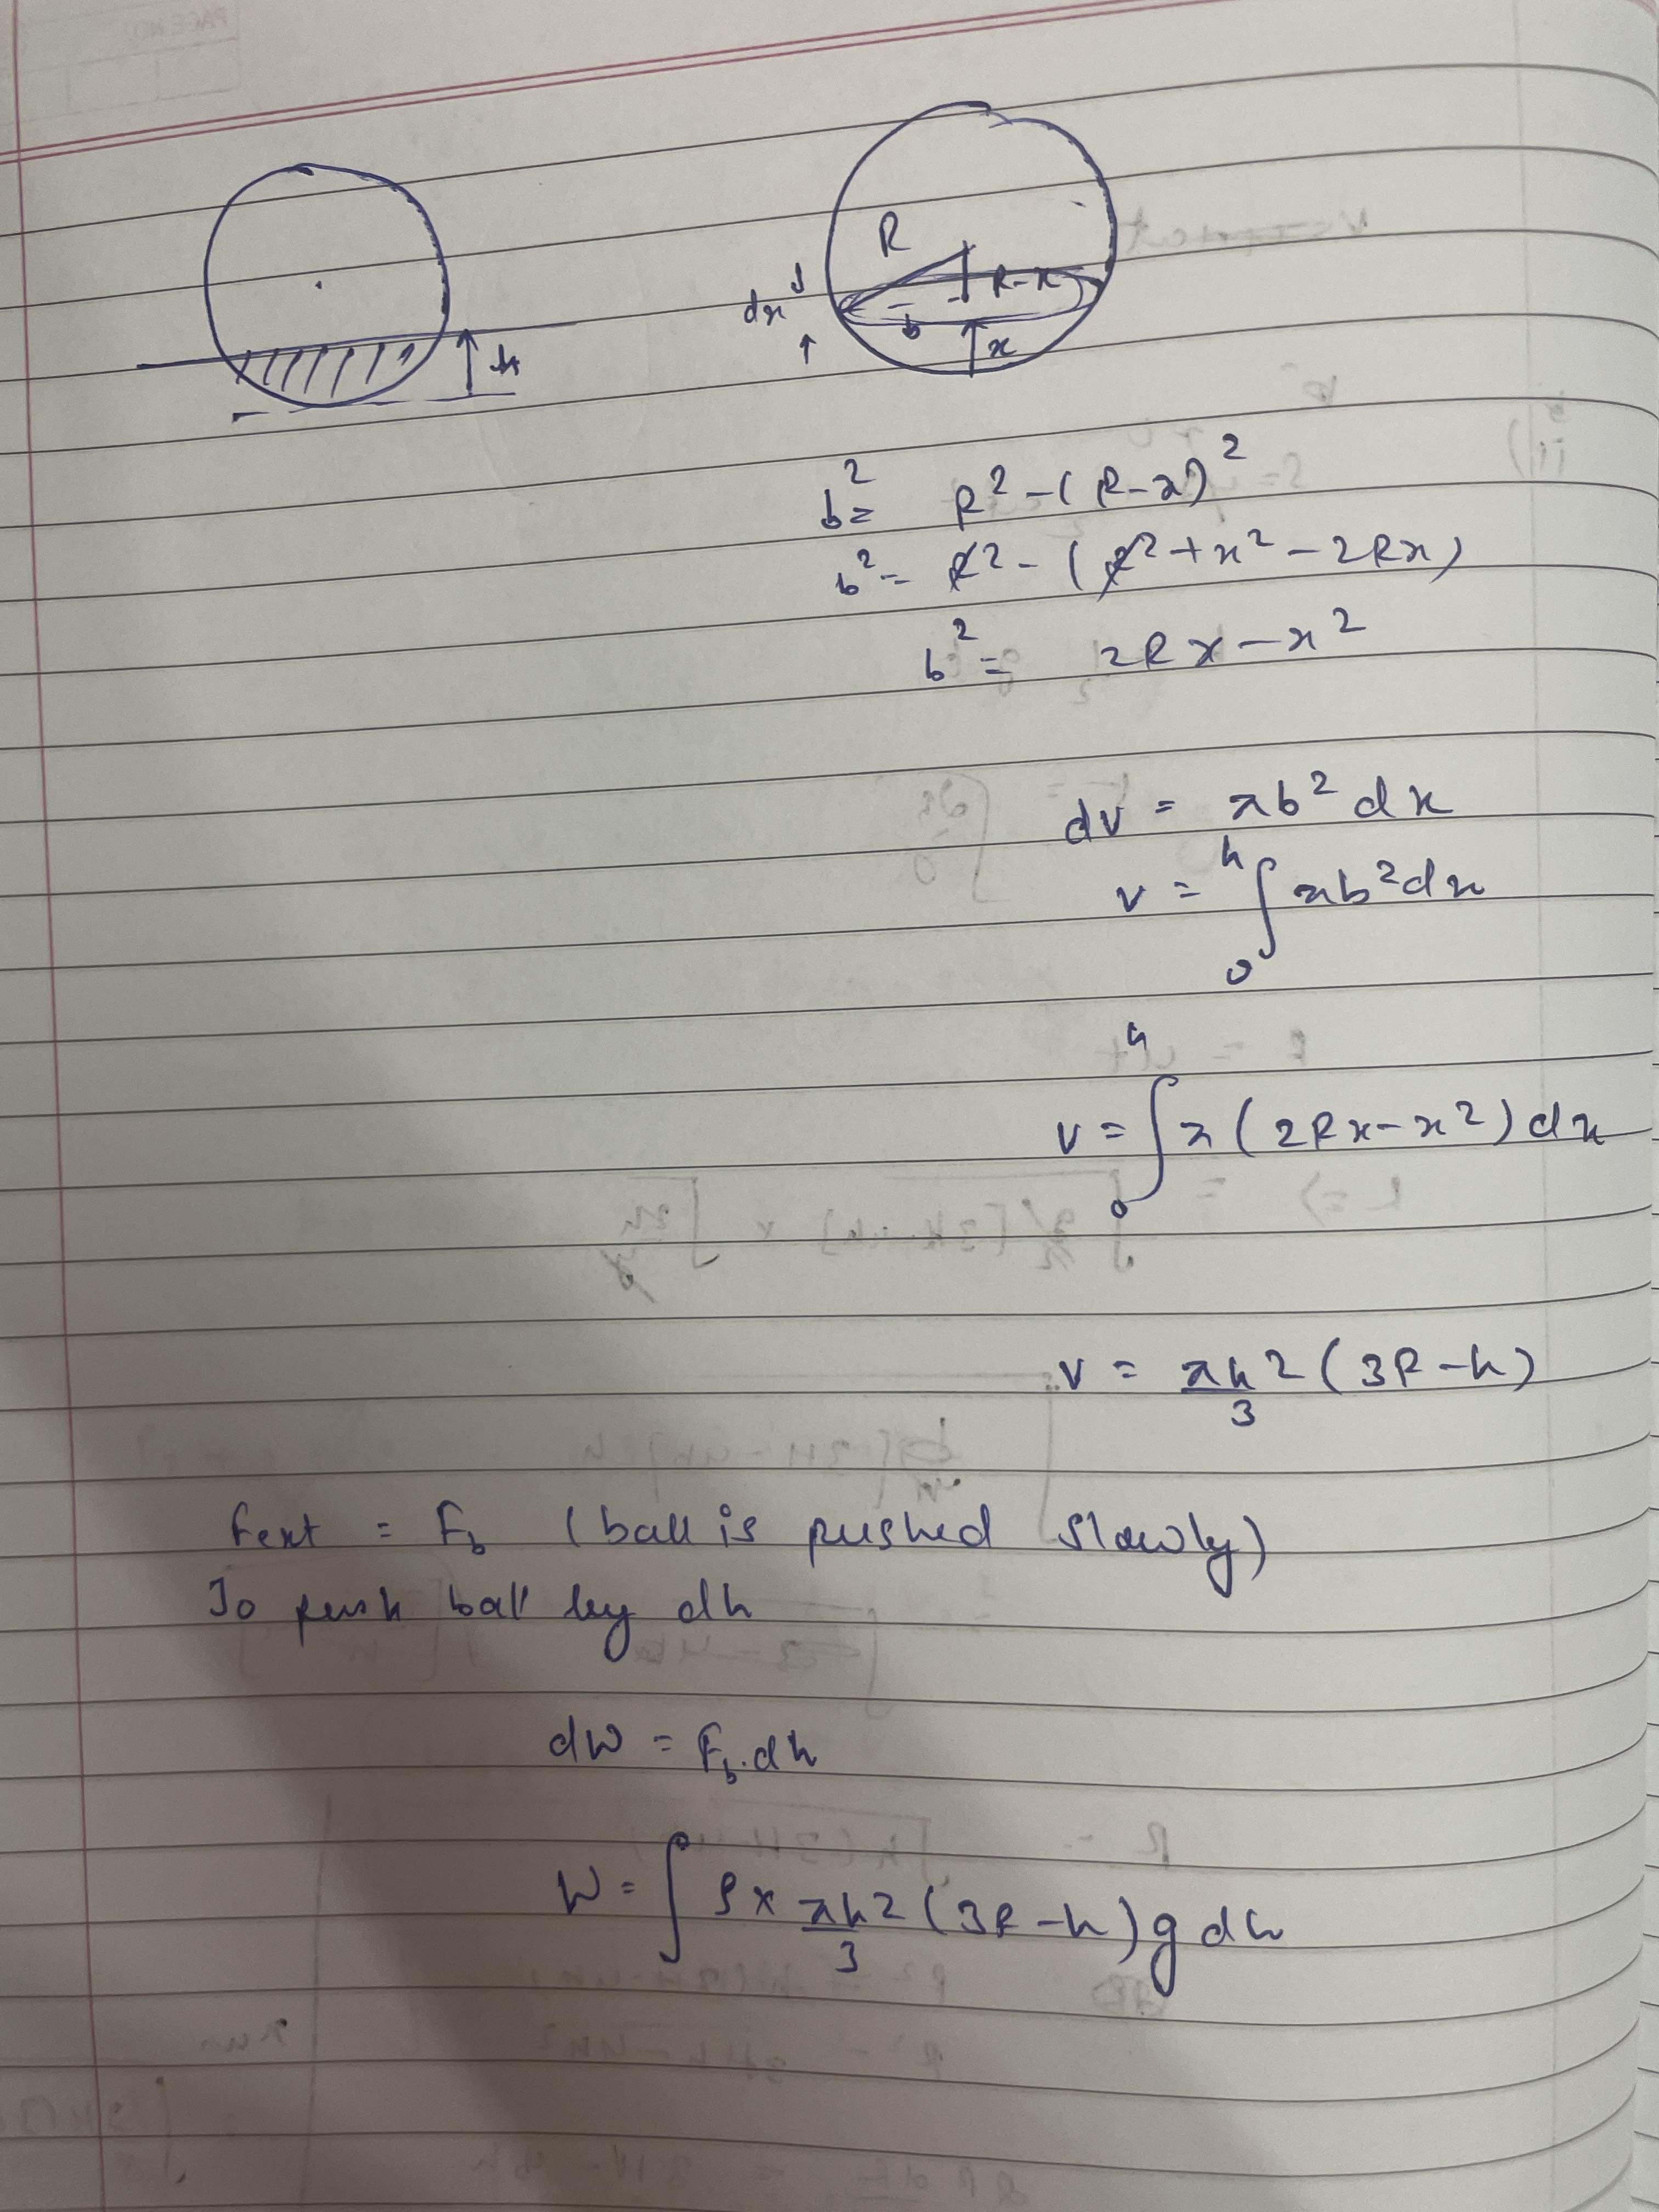 h
R
R-x
dx
b
x
b² = R² - (R-x)²
b² = R² - (R² + x² - 2Rx)
b² = 2Rx - x²
dv = πb² dx
v = ∫₀ʰ πb² dx
v = ∫₀ʰ π(2Rx - x²) dx
v = πh²/3 (3R - h)
Fext = F_b (ball is pushed slowly)
To push ball by dh
dW = F_b . dh
W = ∫ ρ x πh²/3 (3R - h) g dh